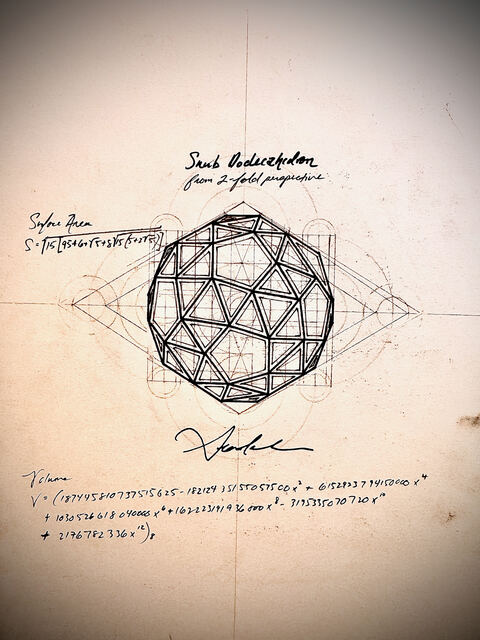 Snub Dodecahedron
from 2-fold perspective
Surface Area
S = √15[95+6√5+8√5(5+2√5)]
Volume
V = (187445810737515625 - 18212435155057500x² + 6152923794150000x⁴
+ 1030526618040000x⁶ + 162223191936000x⁸ - 3195335070720x¹⁰
+ 2176782336x¹²)₈